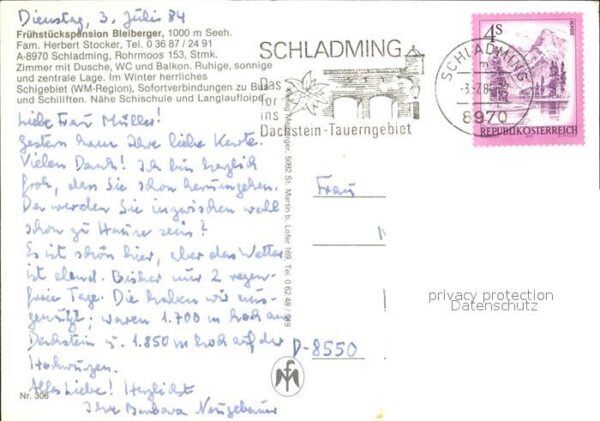 Dienstag, 3. Juli 84
Frühstückspension Bleiberger, 1000 m Seeh.
Fam. Herbert Stocker, Tel. 0 36 87 / 24 91
A-8970 Schladming, Rohrmoos 153, Stmk.
Zimmer mit Dusche, WC und Balkon. Ruhige, sonnige
und zentrale Lage. Im Winter herrliches
Schigebiet (WM-Region), Sofortverbindungen zu Bus
und Schiliften. Nähe Schischule und Langlaufloipe.
Liebe Frau Müller!
Gestern kam Ihre liebe Karte.
Vielen Dank! Ich bin herzlich
froh, dass Sie schon herumgehen.
Da werden Sie inzwischen wohl
schon zu Hause sein?
Es ist schön hier, aber das Wetter
ist elend. Bisher nur 2 regen-
freie Tage. Die haben wir aus-
genützt; waren 1.700 m hoch am
Dachstein u. 1.850 m hoch auf der
Hochwurzen.
Alles Liebe! Herzlichst
Ihre Barbara Neugebauer
Nr. 306
SCHLADMING
Das
Tor
ins
Dachstein-Tauerngebiet
SCHLADMING
8970
4S
REPUBLIK ÖSTERREICH
5092 St. Martin b. Lofer 169, Tel. 0 62 48 /
Frau
D-8550
privacy protection
Datenschutz